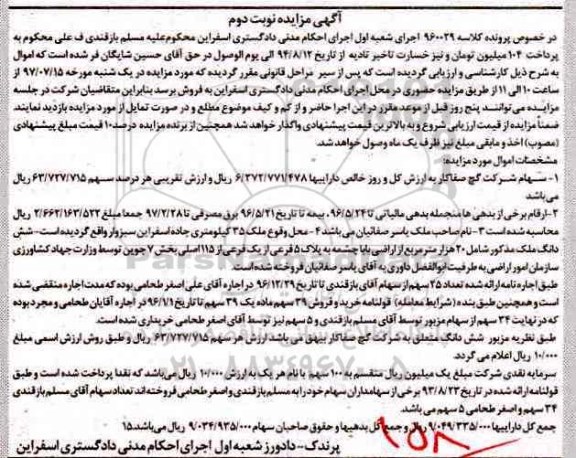 آگهی مزایده نوبت دوم
در خصوص پرونده کلاسه ۹۶۰۰۲۹ اجرای شعبه اول اجرای احکام مدنی دادگستری اسفراین محکوم‌علیه مسلم بازقندی ف علی محکوم به
پرداخت ۱۰۴ میلیون تومان و نیز خسارت تاخیر تادیه از تاریخ ۹۴/۸/۱۲ الی یوم الوصول در حق آقای حسین شایگان فر شده است که اموال
به شرح ذیل کارشناسی و ارزیابی گردیده است که پس از سیر مراحل قانونی مقرر گردیده که مورد مزایده در یک شنبه مورخه ۹۷/۰۷/۱۵ از
ساعت ۱۰ الی ۱۱ از طریق مزایده حضوری در محل اجرای احکام مدنی دادگستری اسفراین به فروش برسد بنابراین متقاضیان شرکت در جلسه
مزایده می‌توانند پنج روز قبل از موعد مقرر در این اجرا حاضر و از کم و کیف موضوع مطلع و در صورت تمایل از مورد مزایده بازدید نمایند.
ضمناً مزایده از قیمت ارزیابی شروع و به بالاترین قیمت پیشنهادی واگذار خواهد شد همچنین از برنده مزایده ۱۰ درصد قیمت مبلغ پیشنهادی
(مصوب) اخذ و مابقی مبلغ نیز ظرف یک ماه وصول خواهد شد.
مشخصات اموال مورد مزایده:
۱- سهام شرکت گچ صفاکار به ارزش کل و روز خالص داراییها ۶/۳۷۲/۷۷۱/۴۷۸ ریال و ارزش تقریبی هر درصد سهم ۶۳/۷۲۷/۷۱۵ ریال
می‌باشد
۲- ارقام برخی از بدهی ها منجمله بدهی مالیاتی تا ۹۶/۵/۲۴، بیمه تا تاریخ ۹۶/۵/۲۱ برق مصرفی تا ۹۷/۲/۲۸ جمعا مبلغ ۲/۶۶۲/۱۶۳/۵۲۲ ریال
محاسبه شده است ۳- نام صاحب ملک یاسر صفائیان می باشد ۴- محل وقوع ملک ۳۵ کیلومتری جاده اسفراین سبزوار واقع گردیده است- شش
دانگ ملک مذکور شامل ۲۰ هزار متر مربع از اراضی بابا چشمه به پلاک ۵ فرعی از یک فرعی از ۱۱۵ اصلی بخش ۷ جوین توسط وزارت جهاد کشاورزی
سازمان امور اراضی به ظرفیت ابوالفضل داوری به آقای یاسر صفائیان فروخته شده است.
طبق اجاره نامه ارائه شده تعداد ۲۵ سهم از سهام آقای بازقندی تا تاریخ ۹۶/۱۲/۲۹ در اجاره آقای علی اصغر طحامی بوده که مدت اجاره منقضی شده
است و همچنین طبق بند ۵ (شرایط معامله) قولنامه خرید و فروش ۳۹ سهم ماده یک ۳۹ سهم تا تاریخ ۹۶/۱/۱ در اجاره آقایان طحامی و مجرد بوده
که در نهایت ۳۴ سهم از سهام مزبور توسط آقای مسلم بازقندی و ۵ سهم نیز توسط آقای اصغر طحامی خریداری شده است.
طبق نظریه مزبور شش دانگ متعلق به شرکت گچ صفاکار بیهق می باشد ارزش هر سهم ۶۳/۷۲۷/۷۱۵ ریال و طبق روش ارزش اسمی مبلغ
۱۰/۰۰۰ ریال اعلام می گردد.
سرمایه نقدی شرکت مبلغ یک میلیون ریال منقسم به ۱۰۰ سهم با نام هر یک به ارزش ۱۰/۰۰۰ ریال می‌باشد که نقدا پرداخت شده است و طبق
قولنامه ارائه شده در تاریخ ۹۳/۸/۲۳ برخی از سهامداران سهام خود را به مسلم بازقندی و اصغر طحامی فروخته اند تعداد سهام آقای مسلم بازقندی
۳۴ سهم و اصغر طحامی ۵ سهم می باشد.
جمع کل داراییها ۹/۰۴۹/۳۳۵/۰۰۰ ریال و جمع کل بدهیها و حقوق صاحبان سهام ۹/۰۳۴/۹۳۵/۰۰۰ ریال می‌باشد.۱۵
پرندک- دادورز شعبه اول اجرای احکام مدنی دادگستری اسفراین
۱۵۸